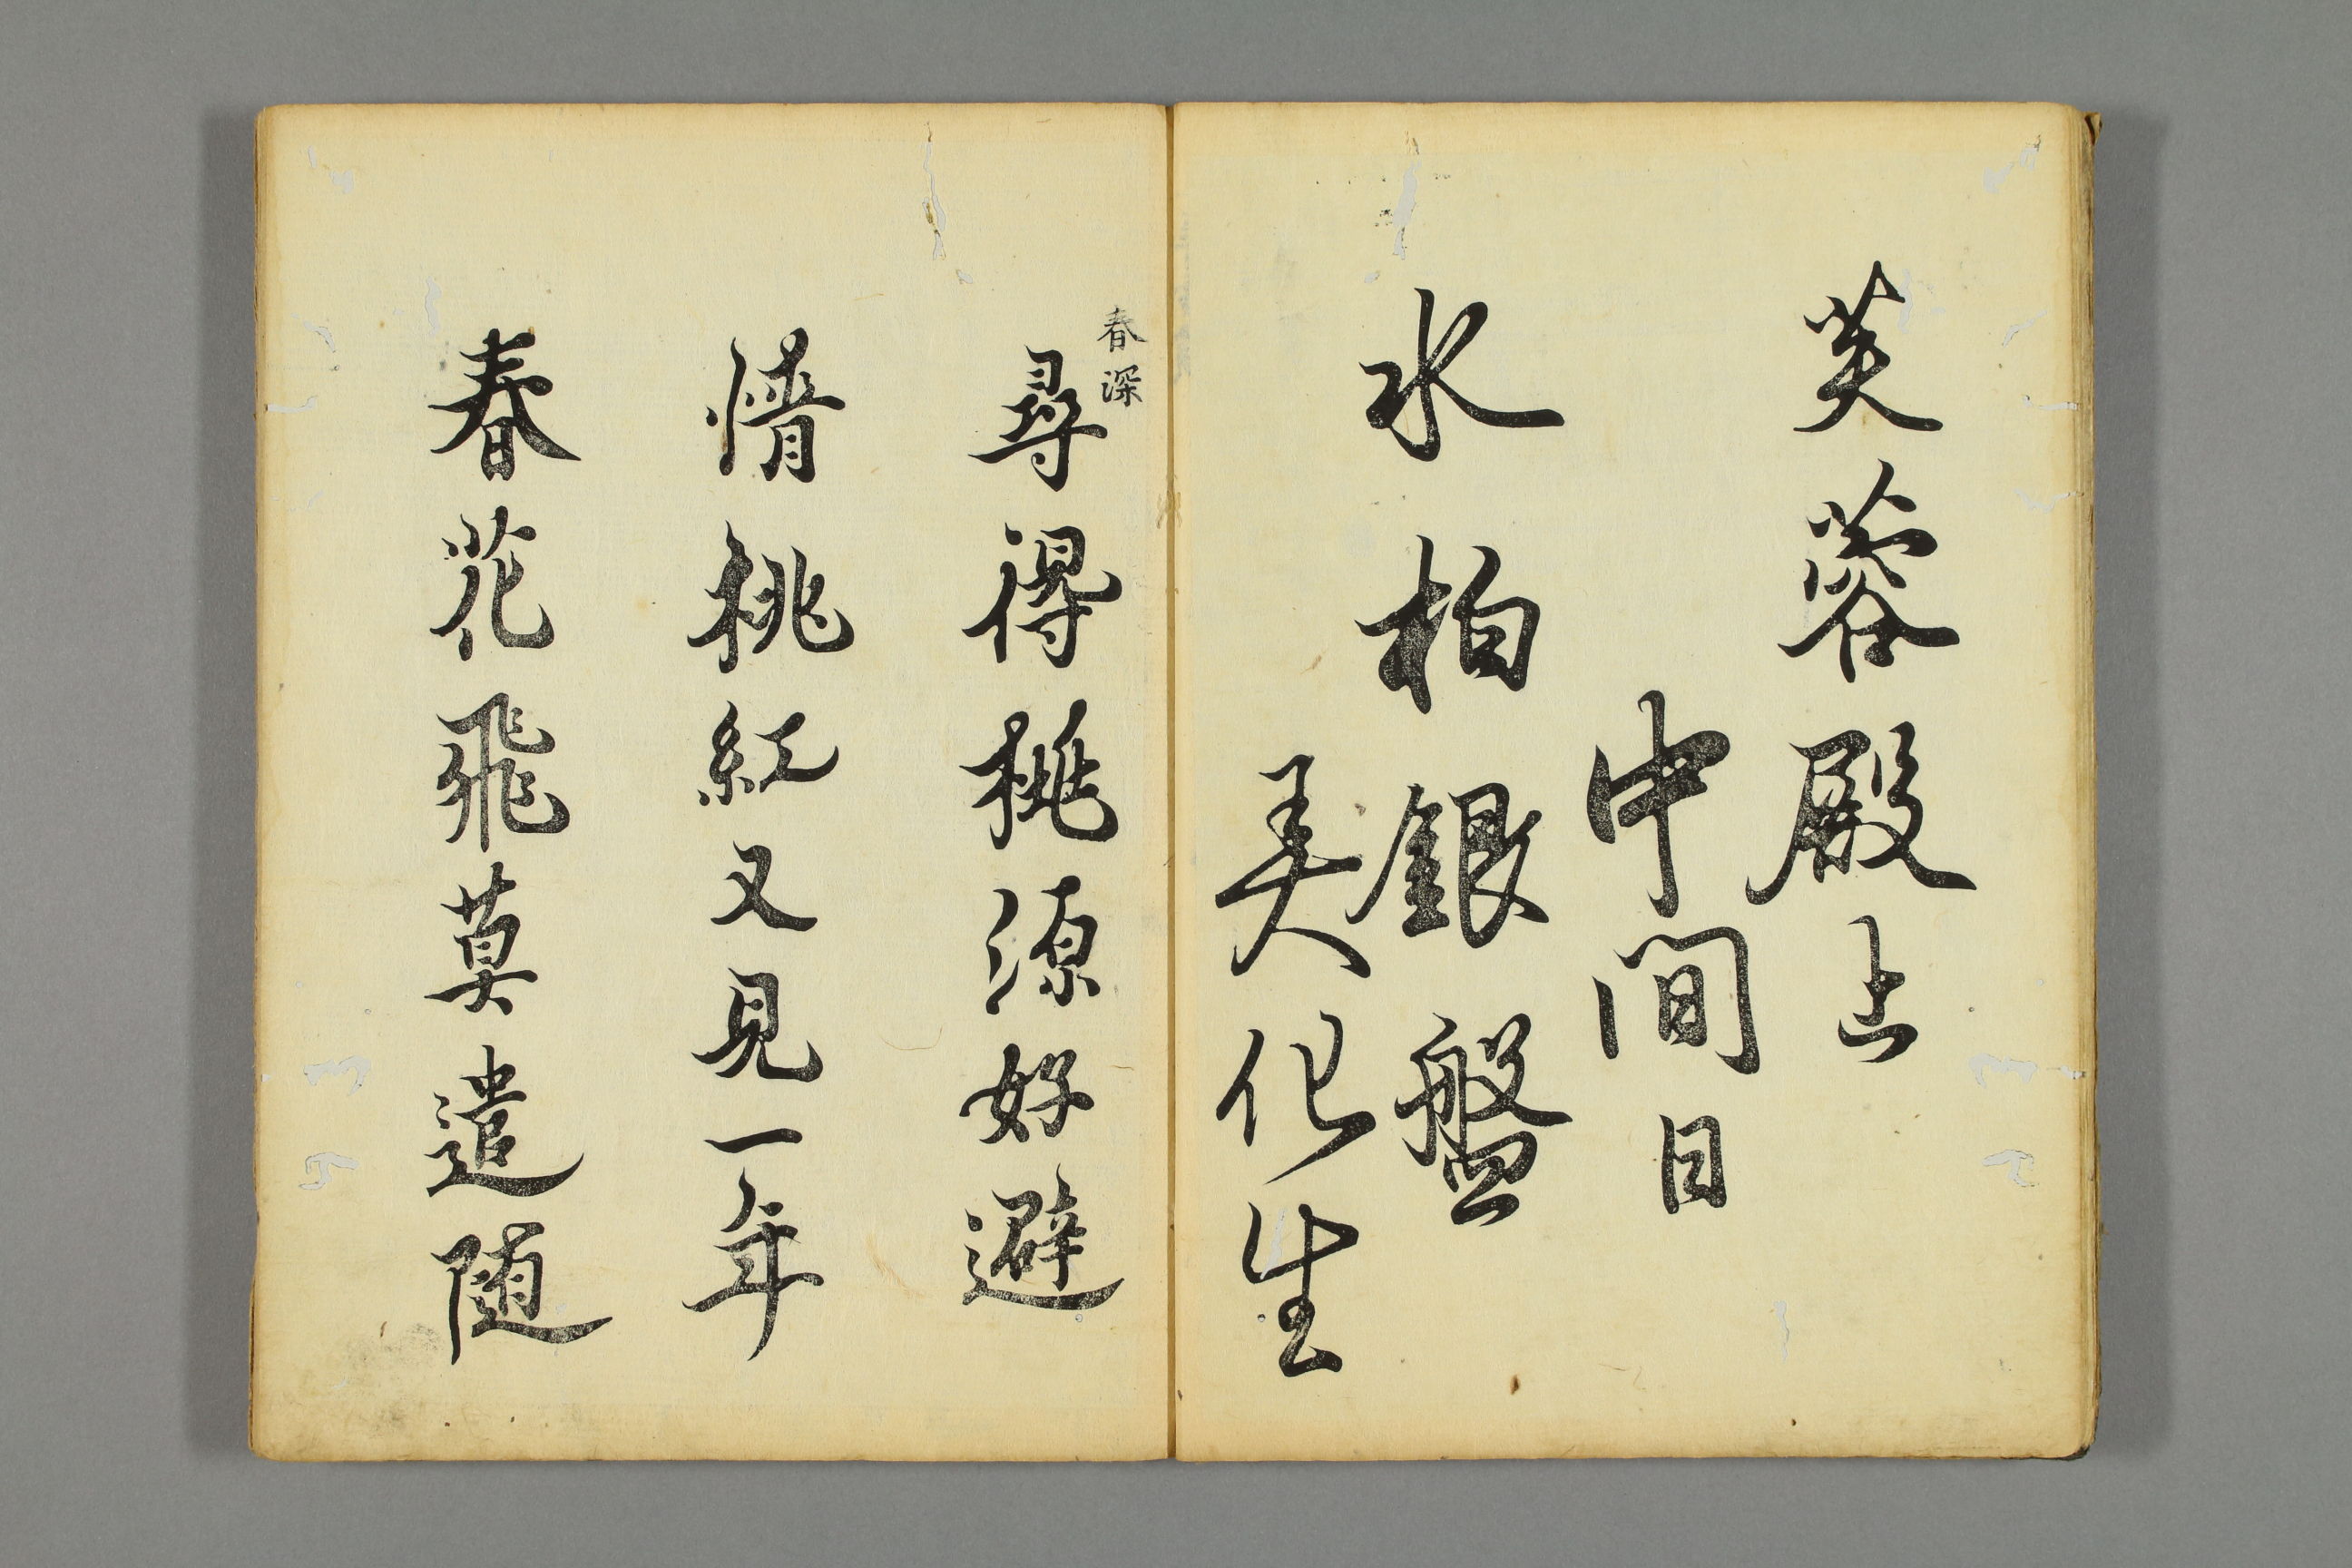 芙蓉殿上
中間日
水柏銀盤
弄化生
春深
尋得桃源好避
情桃紅又見一年
春花飛莫遣随